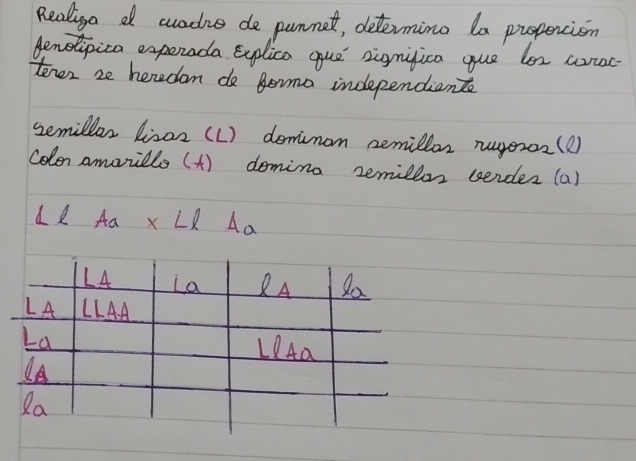 Realiza el cuadro de punnet, determina la proporción
fenotípica esperada. Explica qué significa que los carac-
teres se heredan de forma independiente
semillas lisas (L) dominan semillas rugosas (l)
Color amarillo (A) domina semillas verdes (a)
Ll Aa x Ll Aa
LA La lA la
LA LLAA
La LlAa
lA
la